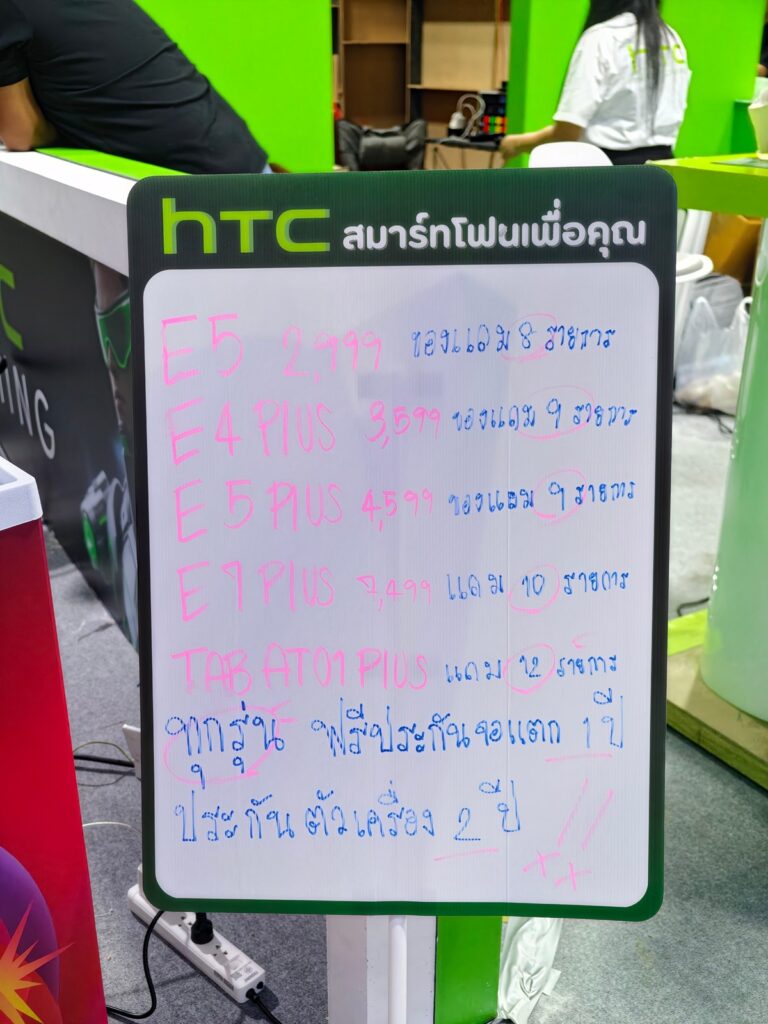 hTC
hTC สมาร์ทโฟนเพื่อคุณ
E5 2,999 ของแถม 8 รายการ
E4 PlUS 3,599 ของแถม 9 รายการ
E5 PlUS 4,599 ของแถม 9 รายการ
E1 PlUS 7,499 แถม 10 รายการ
TAB AT01 PlUS แถม 12 รายการ
ทุกรุ่น ฟรีประกันจอแตก 1 ปี
ประกันตัวเครื่อง 2 ปี